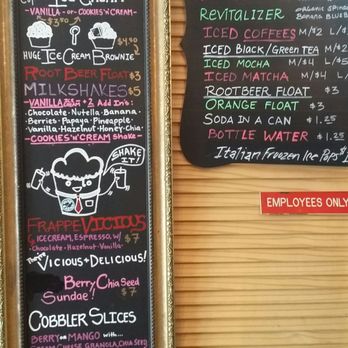 VANILLA - OR - COOKIES 'N' CREAM -
$3.50
$4.50
HUGE ICE CREAM BROWNIE
ROOT BEER FLOAT $3
MILKSHAKES $5
- VANILLA + 2 Add In's:
Chocolate - Nutella - Banana -
Berries - Papaya - Pineapple -
Vanilla - Hazelnut - Honey - Chia
- COOKIES 'n' CREAM Shake -
SHAKE IT!
FRAPPE VICIOUS
ICE CREAM, ESPRESSO, w/ $7
- Chocolate - Hazelnut - Vanilla -
They're VICIOUS + DELICIOUS!
Berry Chia Seed
Sundae! $7
COBBLER SLICES
BERRY OR MANGO with...
CREAM CHEESE, GRANOLA, CHIA SEED
REVITALIZER
ORGANIC SPIN
BANANA BLUEB
ICED COFFEES M/$2 L/$
ICED BLACK/GREEN TEA M/$2
ICED MOCHA M/$4 L/$5
ICED MATCHA M/$4 L/$
ROOTBEER FLOAT $3
ORANGE FLOAT $3
SODA IN A CAN $1.25
BOTTLE WATER $1.25
Italian Frozen Ice Pops $
EMPLOYEES ONLY